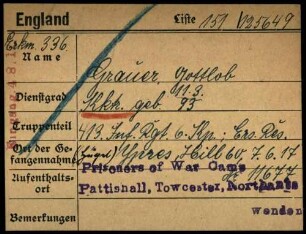 England Liste 151 V25649
Erkm. 336
Name Grauer, Gottlob
11.3.
Dienstgrad Kkk. geb 93
Truppenteil 413. Inf. Rgt. 6. Kp.; Ers. Res.
Ort der Gefangennahme Ypres, Hill 60, 7.6.17
Prisoners of War Camp
Aufenthaltsort 11677
Pattishall, Towcester, Northants
Bemerkungen wenden